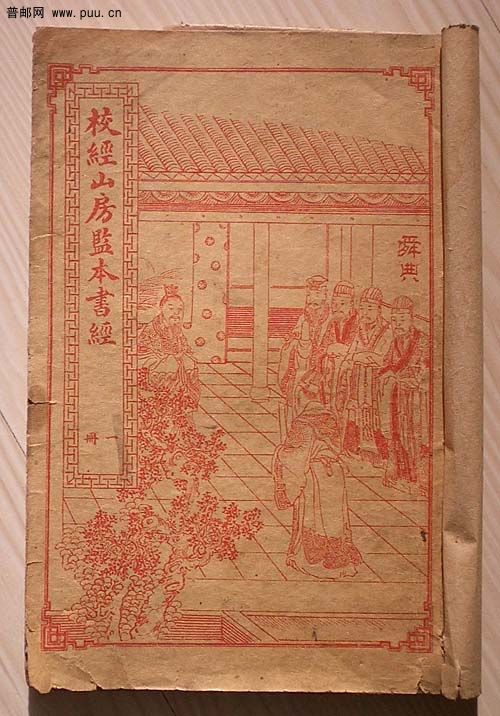 普邮网
www.puu.cn
校經山房監本書經
一冊
舜典